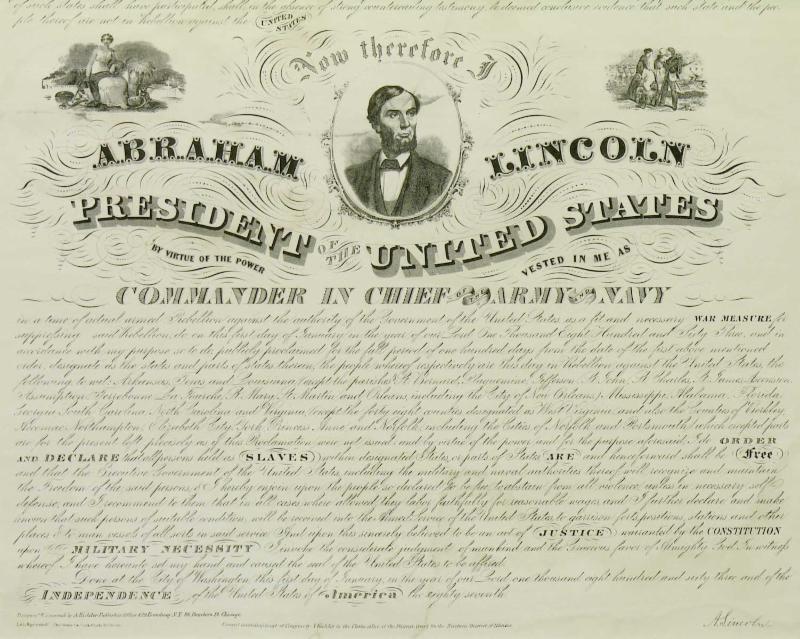 of such States shall have participated, shall, in the absence of strong countervailing testimony, be deemed conclusive evidence that such state and the peo-
ple thereof are not in Rebellion against the UNITED STATES
Now therefore I
ABRAHAM LINCOLN
PRESIDENT OF THE UNITED STATES
BY VIRTUE OF THE POWER VESTED IN ME AS
COMMANDER IN CHIEF OF THE ARMY AND NAVY
in a time of actual armed Rebellion against the authority of the Government of the United States, as a fit and necessary WAR MEASURE for
suppressing said Rebellion, do on this first day of January in the year of our Lord One Thousand Eight Hundred and Sixty Three, and in
accordance with my purpose so to do, publicly proclaimed for the full period of one hundred days from the date of the first above mentioned
order, designate as the States and parts of States therein, the people whereof respectively are this day in Rebellion against the United States, the
following to wit: Arkansas, Texas and Louisiana, (except the parishes of St. Bernard, Plaquemine, Jefferson, St. John, St. Charles, St. James, Ascension,
Assumption, Terrebonne, La Fourche, St. Mary, St. Martin and Orleans, including the City of New Orleans) Mississippi, Alabama, Florida,
Georgia, South Carolina, North Carolina and Virginia, (except the forty eight counties designated as West Virginia, and also the Counties of Berkley,
Accomac, Northampton, Elizabeth City, York, Princess Anne and Norfolk, including the Cities of Norfolk and Portsmouth) which excepted parts
are for the present left precisely as if this Proclamation were not issued: and by virtue of the power and for the purpose aforesaid, I do ORDER
AND DECLARE that all persons held as SLAVES within designated States, or parts of States ARE and henceforward shall be Free
and that the Executive Government of the United States, including the military and naval authorities thereof will recognize and maintain
the Freedom of the said persons, & I hereby enjoin upon the people so declared to be free to abstain from all violence, unless in necessary self
defense, and I recommend to them that in all cases where allowed they labor faithfully for reasonable wages, and I further declare and make
known that such persons of suitable condition, will be received into the Armed Service of the United States, to garrison forts, positions, stations and other
places & to man vessels of all sorts in said service. And upon this sincerely believed to be an act of JUSTICE warranted by the CONSTITUTION
upon MILITARY NECESSITY I invoke the considerate judgment of mankind and the Gracious favor of Almighty God. In witness
whereof I have hereunto set my hand and caused the seal of the United States to be affixed.
Done at the City of Washington this first day of January, in the year of our Lord one thousand eight hundred and sixty three and of the
INDEPENDENCE of the United States of America the eighty seventh
A. Lincoln